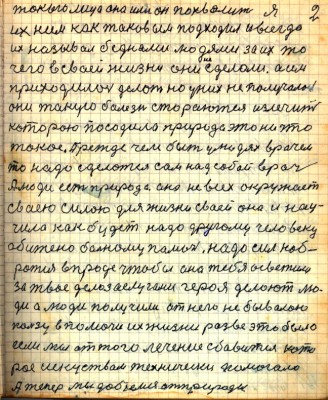 такого мира она им он похвалит Я 2
их ним как таковым подходил и всегда
их называл бедными людями за их то
чего в своей жизни они зделали. а им
приходилось делат но у них не получалос
они такую болезн стораются излечит
которою посодила природа это ни что
такое. Прежде чем быт у людях врачем
то надо зделатся сам над собой врач
А люди ест природа она не всех окружает
своею силою для жизни своей она и нау-
чила как будет надо другому человеку
обижено больному помоч. надо сил наб-
ратся в природе чтобы она тебя ответила
за твое дело заслугами героя делают лю-
ди а люди получили от него не бывалою
ползу в помоги их жизни разве это было
если мы от того лечение сбавится кото
рое искуством технически помогало
А тепер мы добьемся от природы